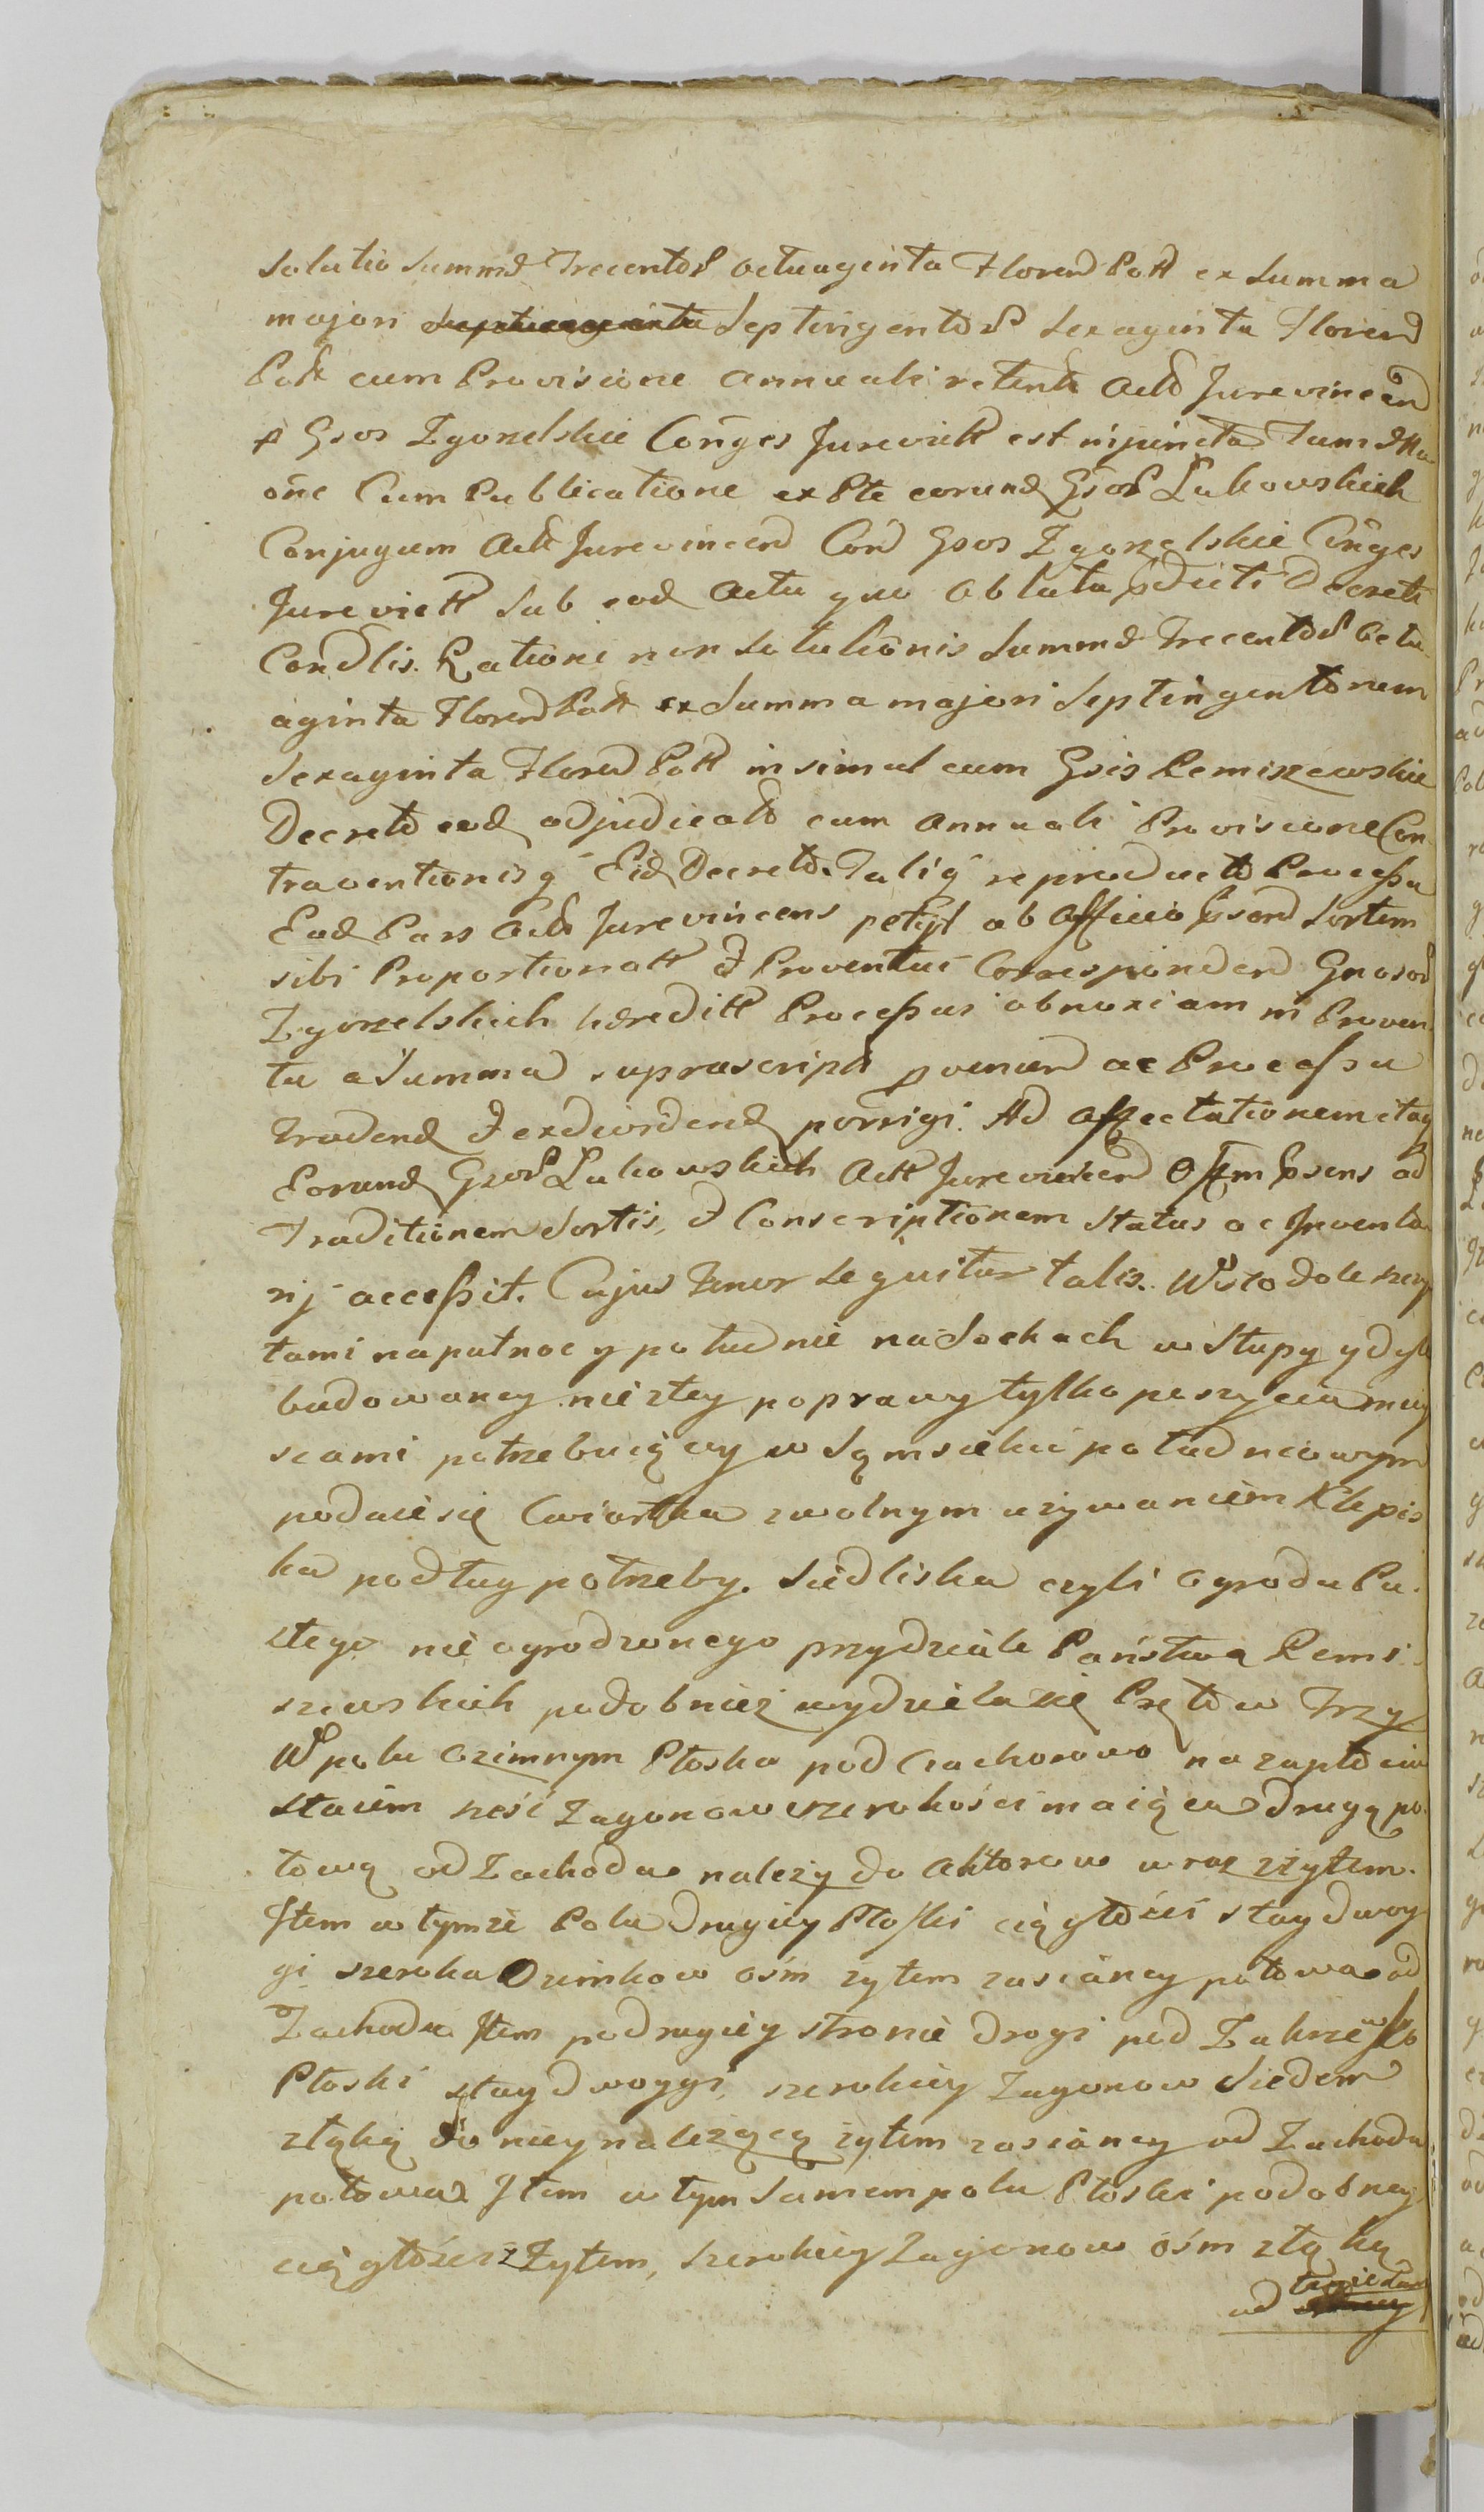 Solutio Summæ Trecentos octuaginta Floren Poll ex Summa
majori Septuaginta Septingentos Sexaginta Floren
Poll cum Provisione annuali retent Acto Jurevincen
p Gsos Zgorzelskie Conges Jurevict est injuncta Tum
one Cum Publicatione ex Pte eorund Gsor Łukowskich
Conjugum Act Jurevincen Con Gsos Zgorzelskie Conges
Jurevict Sub eod Actu quo oblata pdicti Decreti
Condlis. Ratione non Solutionis Summæ Trecentos Octu-
aginta Floren Poll ex Summa majori Septingentorum
Sexaginta Floren Poll insimul cum Gsis Remiszewskie
Decreto eod adjudicato cum annuali Provisione Con-
traventionisq Eid Decreto. Taliq reproducto Processu
Ead Pars Acto Jurevincens petijt ab Officio psen Sortem
sibi Proportionatt et Proventui Corresponden Gnosor
Zgorzelskich heredit Processui obnoxiam in Proven-
tu a Summa suprascripti provenien ac Processu
tradend et exdividend porrigi. Ad affectationem itaq
Eorund Gsor Łukowskich Act Jurevincen Offm psens ad
Traditionem Sortis, et Conscriptionem Status ac Inventa-
rij accessit. Cujus Tenor sequitur talis. W Stodole szczy-
tami na pułnoc y południe na Sochach w Słupy y dyle
budowaney nie złey poprawy tylko poszycia miey-
scami potrzebuiący w Sąmsieku południowym
podaie się Cwiartka z wolnym używaniem Klepis-
ka podług potrzeby. Siedliska czyli ogrodu Pu-
stego nie ogrodzonego przy dziale Państwa Remi-
szewskich podobniesz wydziela się Prętow Trzy
W polu ozimnym Płoska pod Czachorowo na zapłociu
staiem sześć Zagonow szerokości maiąca drugą po-
łową od Zachodu należy do Aktorow wraz z żytem.
Item w tymże Polu drugiey Płoski ciągłości stay dwoy-
gi szeroka Ozimkow ośm żytem zasianey połowa od
Zachodu Item po drugiey stronie drogi pod Zakrzewko
Płoski stay dwoygi, szerokiey Zagonow Siedem
z łąką do niey należącą żytem zasianey od Zachodu
połowa Item w tym Samem polu Płoski podobney
ciągłości z Żytem, szerokiey Zagonow ośm z łąką
od